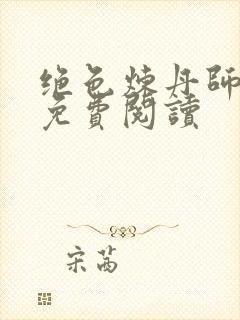 绝色炼丹師
免費閱讀
宋茜